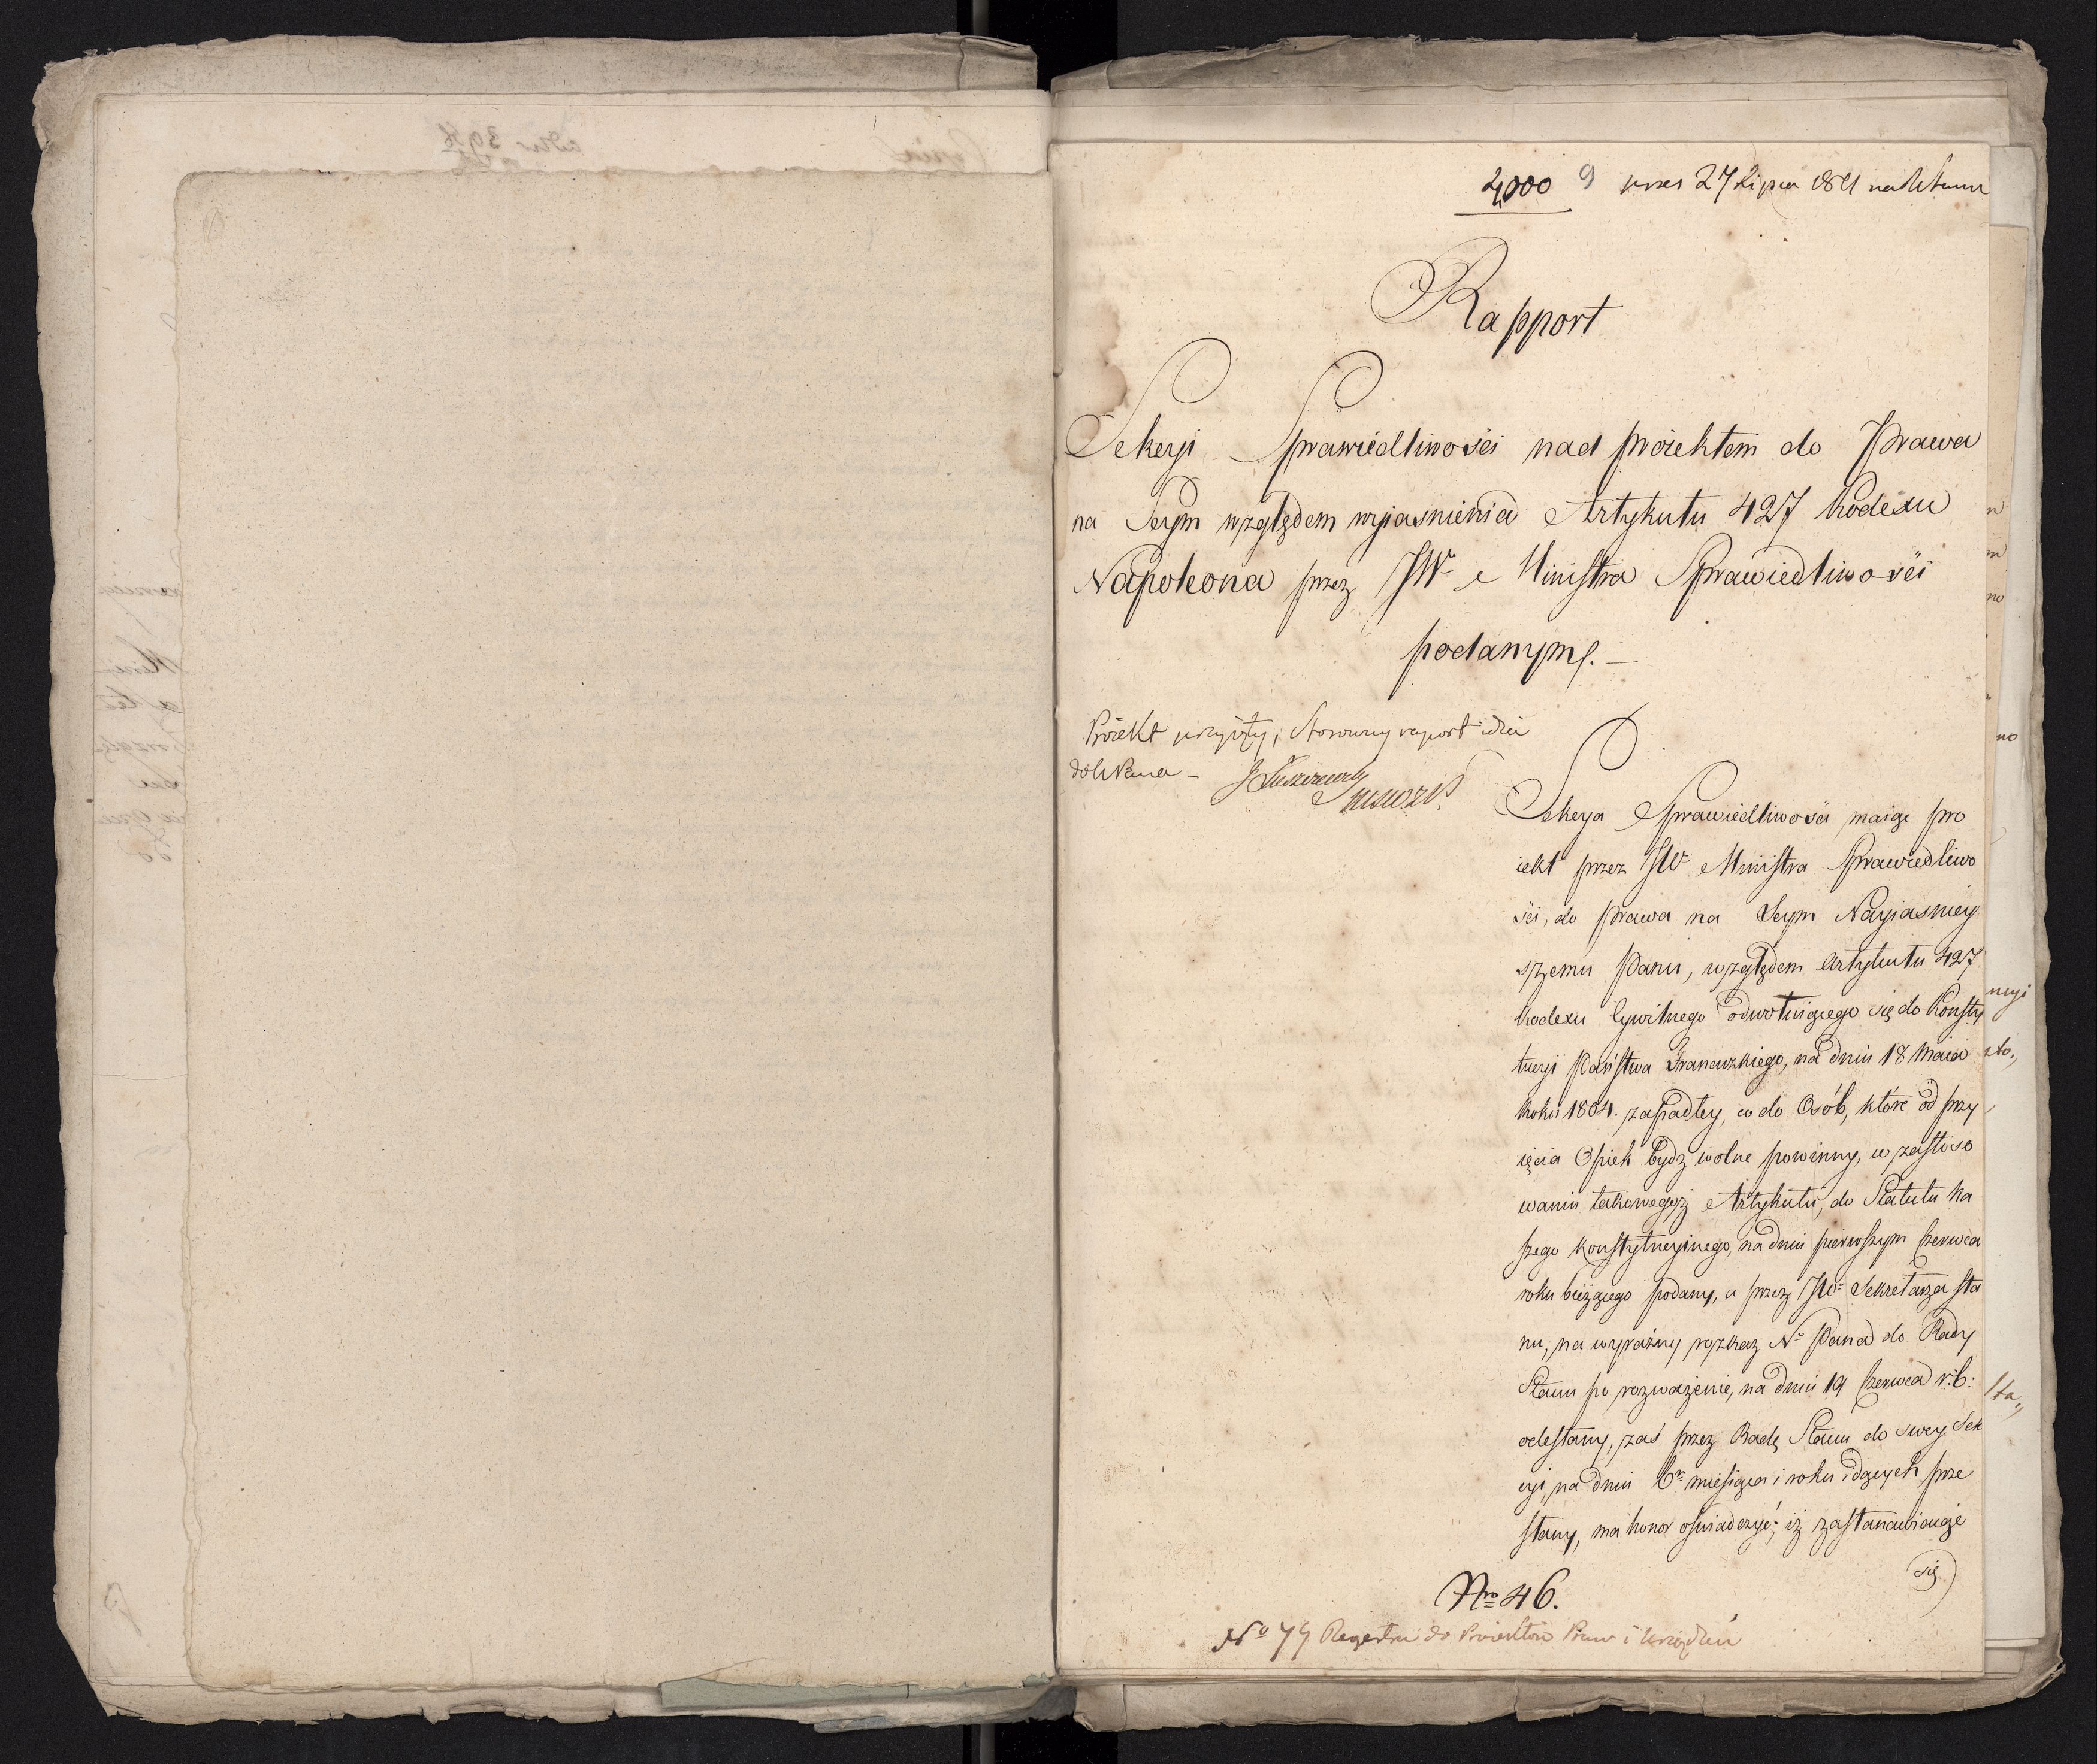 4,000 9 27 Lipca 1811
Rapport
Sekcyi Sprawiedliwości nad proiektem do Prawa
na Seym względem wyiasnienia Artykułu 427 Kodexu
Napoleona przez JW. Ministra Sprawiedliwości
podanym.
Proiekt przyięty, stosowny raport idzie
do
Sekcya Sprawiedliwości maiąc pro
iekt przez JW. Ministra Sprawiedliwo
ści, do prawa na Seym Nayiasniey
szemu Panu, względem Artykułu 427
Kodexu Cywilnego odwołuiącego się do Konsty
tucyi Państwa Francuzkiego, na dniu 18 Maia
Roku 1804. zapadłey, co do Osób, które od przy
ięcia Opiek bydź wolne powinny, w zastoso
waniu takowegoż Artykułu, do Statutu Na
szego Konstytucyinego, na dniu pierwszym Czerwca
roku bieżącego podany, a przez JW. Sekretarza Sta
nu, na wyraźny rozkaz N. Pana do Rady
Stanu po rozważenie, na dniu 19 Czerwca r. b:
odesłany, zaś przez Radę Stanu do swey Sek
cyi, na dniu miesiąca i roku idących prze
słany, ma honor oświadczyć; iż zastanawiaiąc
się
Nro 46.
No 74 Regestru do Proiektów Praw i Urządzeń